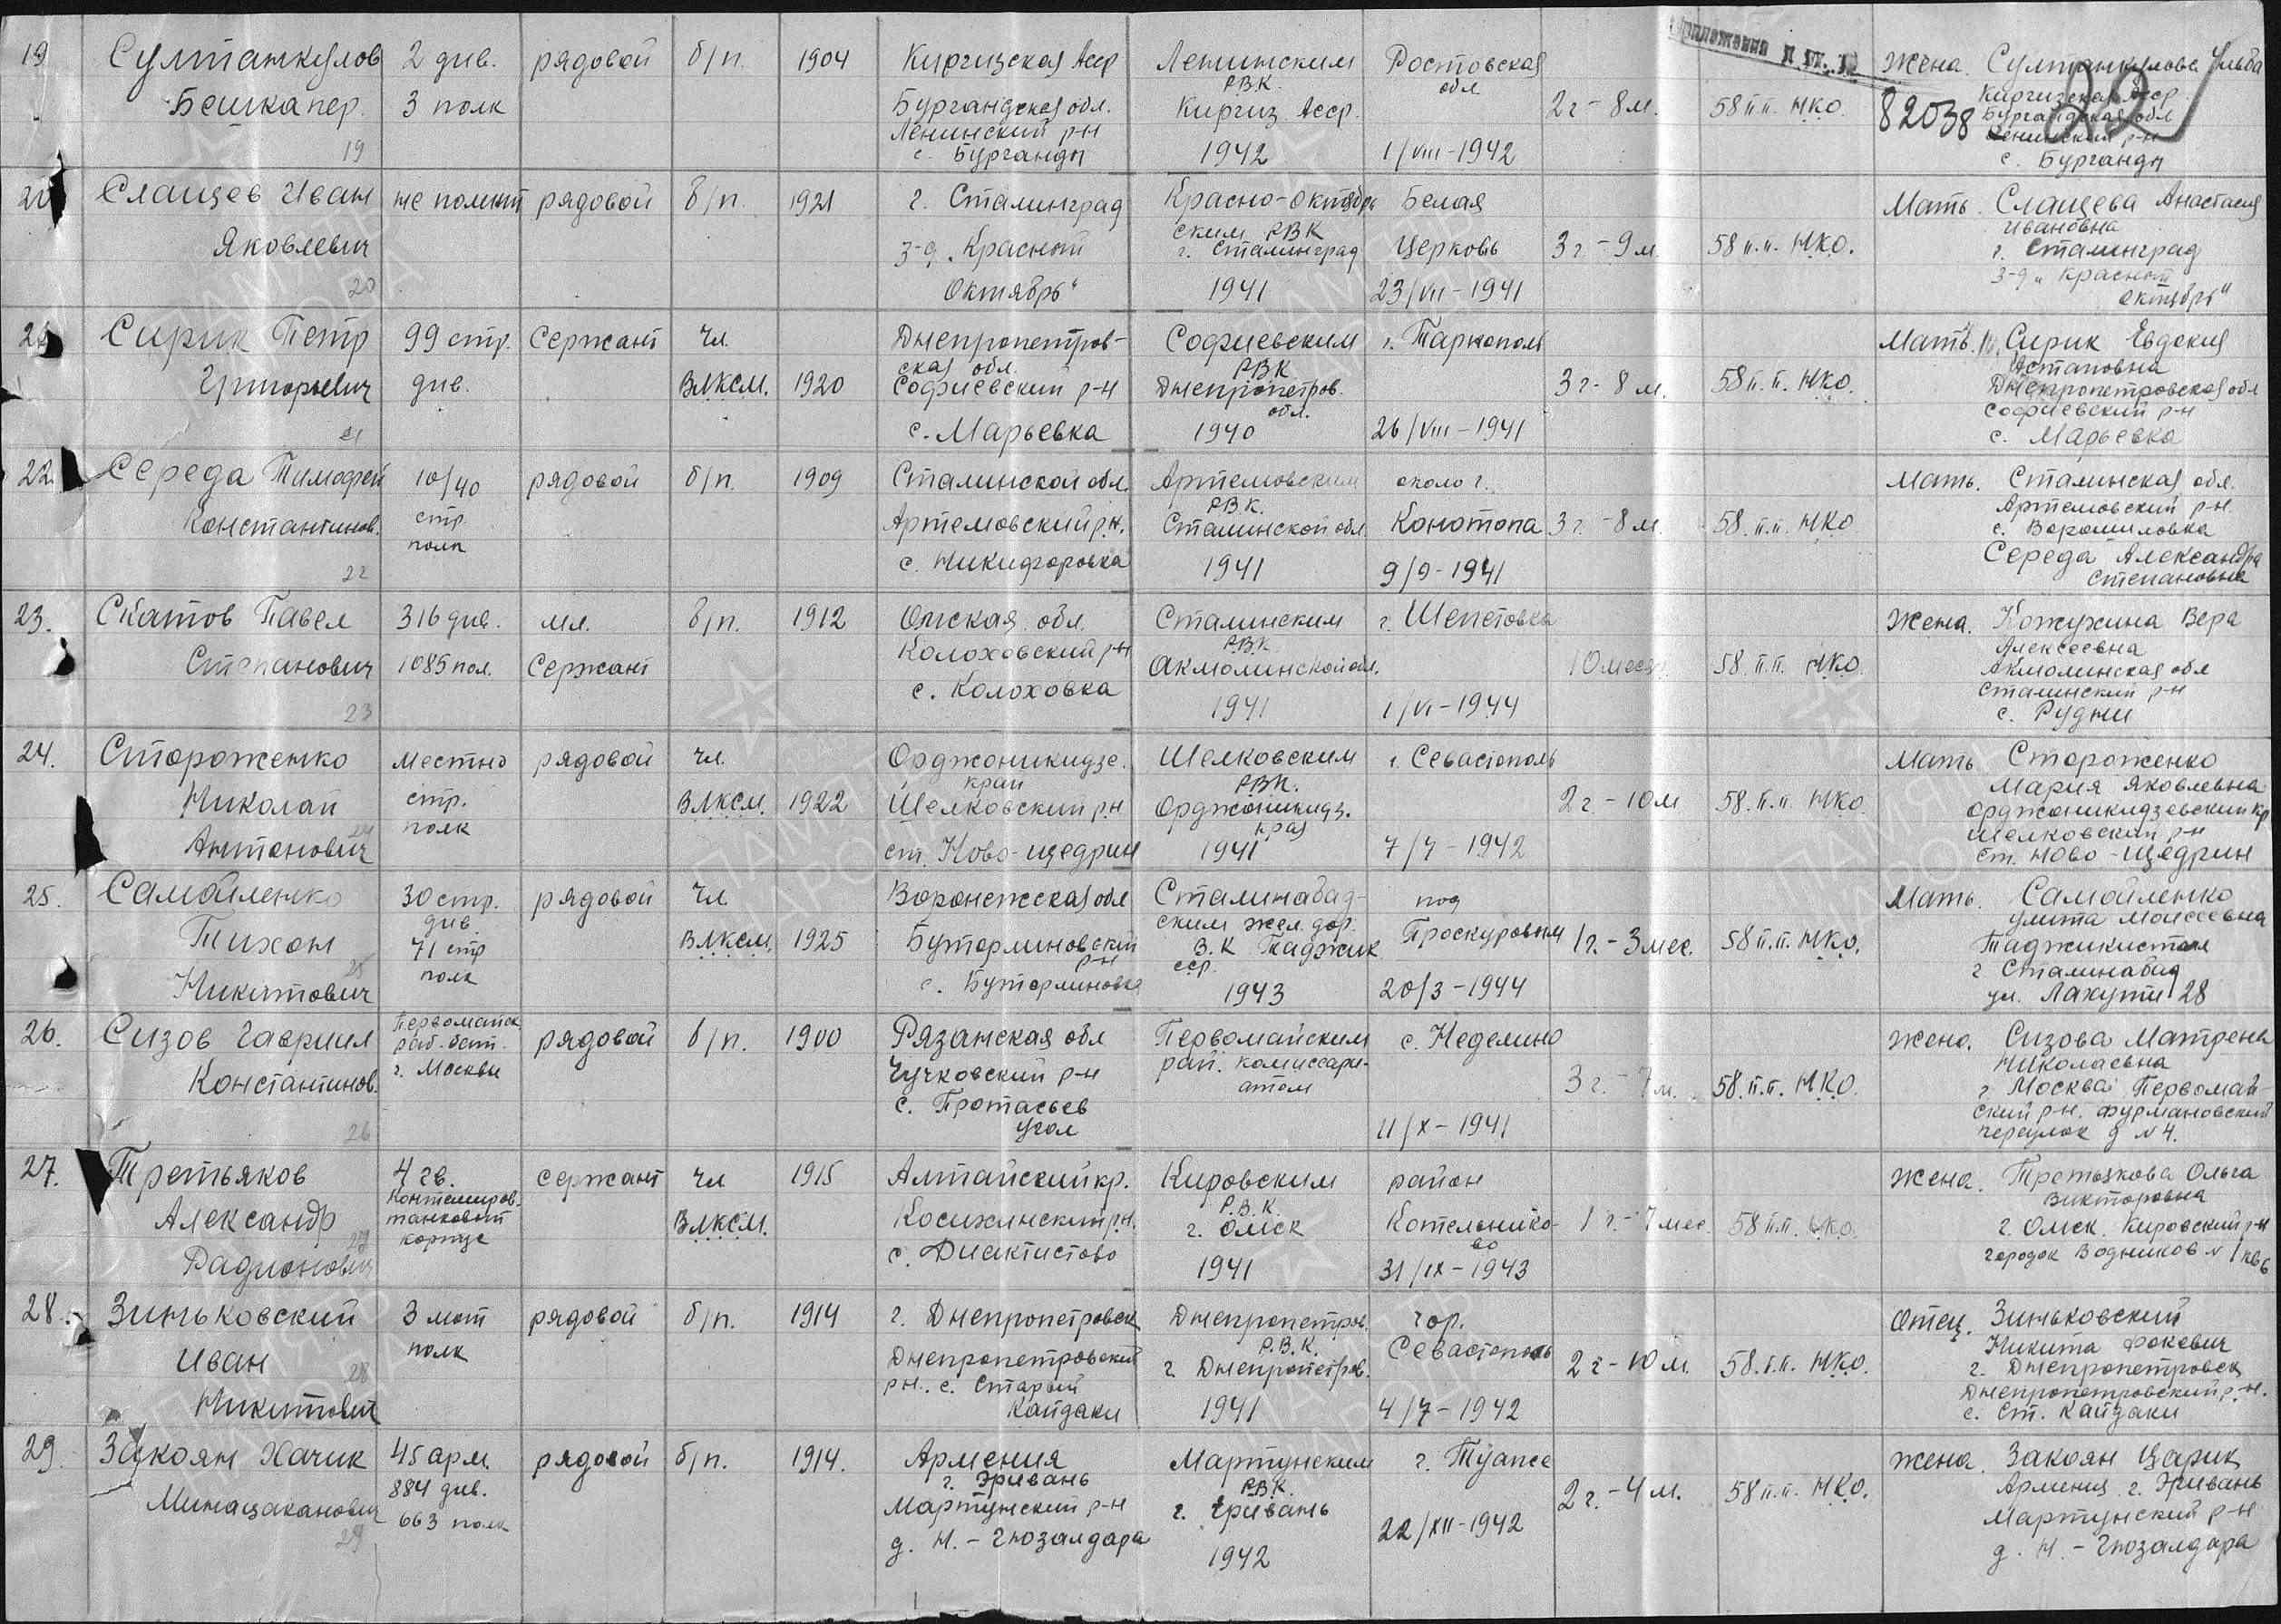 19 Султанкулов 2 див. рядовой б/п. 1904 Киргизская Асср Ленинским Ростовская Жена. Султанкулова
Р.В.К. обл
Бешкапер. 3 полк Бургандская обл. Киргиз Асср. 2 г - 8 м. 58 п.п. НКО. 82038 Киргизская Асср
Ленинский р-н Бургандская обл
19 с. Бурганды 1942 1/VIII-1942 Ленинский р-н
с. Бурганды
Приложение к
20 Сланцев Иван не помнит рядовой б/п. 1921 г. Сталинград Красно-Октябрь Белая Мать. Сланцева Анастасия
ским РВК Ивановна
Яковлевич з-д „Красный г. Сталинград Церковь 3 г - 9 м 58 п.п. НКО. г. Сталинград
з-д „Красный
20 Октябрь" 1941 23/VII-1941 Октябрь"
21 Сирик Петр 99 стр. Сержант чл. Днепропетров- Софиевским г. Тарнополь Мать. Сирик Евдокия
ская обл. РВК Остаповна
Григорьевич див. ВЛКСМ. 1920 Софиевский р-н Днепропетров. 3 г - 8 м. 58 п.п. НКО. Днепропетровская обл
обл. Софиевский р-н
21 с. Марьевка 1940 26/VIII-1941 с. Марьевка
22 Середа Тимофей 10/40 рядовой б/п. 1909 Сталинской обл. Артемовским около г. Мать. Сталинская обл.
стр. Р.В.К. Артемовский р-н
Константинов. полк Артемовский р.н. Сталинской обл. Конотопа 3 г. - 8 м. 58. п.п. НКО с. Ворошиловка
Середа Александра
22 с. Никифоровка 1941 9/9-1941 Степановна
23. Скатов Павел 316 див. мл. б/п. 1912 Омская обл. Сталинским г. Шепетовка Жена. Кожухина Вера
Р.В.К. Алексеевна
Степанович 1085 пол. Сержант Колоховский р-н Акмолинской обл. 10 месяц. 58. п.п. НКО. Акмолинская обл
с. Колоховка Сталинский р-н
23 1941 1/VI-1944 с. Рудни
24. Стороженко местно рядовой чл. Орджоникидзе. Шелковским г. Севастополь Мать Стороженко
край РВК. Мария Яковлевна
Николай стр. ВЛКСМ. 1922 Шелковский р.н Орджоникидз. 2 г - 10 м 58. п.п. НКО. Орджоникидзевский кр
полк края Шелковский р-н
24 Антонович ст. Ново-щедрин 1941 7/7-1942 ст. Ново-щедрин
25. Самойленко 30 стр. рядовой чл. Воронежская обл Сталинабад- под Мать. Самойленко
див. ским жел. дор. Улита Моисеевна
Тихон 71 стр ВЛКСМ. 1925 Бутурлиновский В.К Таджик Проскуровым 1 г. - 3 мес. 58 п.п. НКО. Таджикистан
полк р-н сср. г Сталинабад
25 Никитович с. Бутурлиновка 1943 20/3-1944 ул. Лахути 28
26. Сизов Гавриил Первомайск рядовой б/п. 1900 Рязанская обл Первомайским с. Неделино жена. Сизова Матрена
раб. бат. рай. комиссари- Николаевна
Константинов. г. Москвы Чучковский р-н атом 3 г - 7 м. 58. п.п. НКО. г. Москва Первомай-
с. Протасьев ский р-н. Фурмановский
26 Угол 11/X-1941 переулок д № 4.
27. Третьяков 4 гв. сержант чл 1915 Алтайский кр. Кировским район Жена. Третьякова Ольга
Контемиров. Р.В.К. Викторовна
Александр танковый ВЛКСМ. Косихинский р.н. г. Омск Котельнико- 1 г. - 7 мес. 58 п.п. НКО. г. Омск. Кировский р-н
корпус во городок Водников № 1 кв 6
27 Радионович с. Диактистово 1941 31/IX-1943
28. Зиньковский 3 мот рядовой б/п. 1914 г. Днепропетровск Днепропетров. гор. Отец. Зиньковский
полк Р.В.К. Никита Фокевич
Иван Днепропетровский г. Днепропетров. Севастополь 2 г - 10 м. 58. п.п. НКО. г. Днепропетровск
28 р-н. с. Старый Днепропетровский р.-н.
Никитович Кайдаки 1941 4/7-1942 с. Ст. Кайдаки
29. Закоян Хачик 45 арм. рядовой б/п. 1914. Армения Мартунским г. Туапсе жена. Закоян Царик
884 див. г. Эривань Р.В.К. Армения г. Эривань
Минацаканович 663 полк Мартунский р-н г. Ериванъ 2 г. - 4 м. 58 п.п. НКО. Мартунский р-н
29 д. Н.-Гюзалдара 1942 22/XII-1942 д. Н.-Гюзалдара